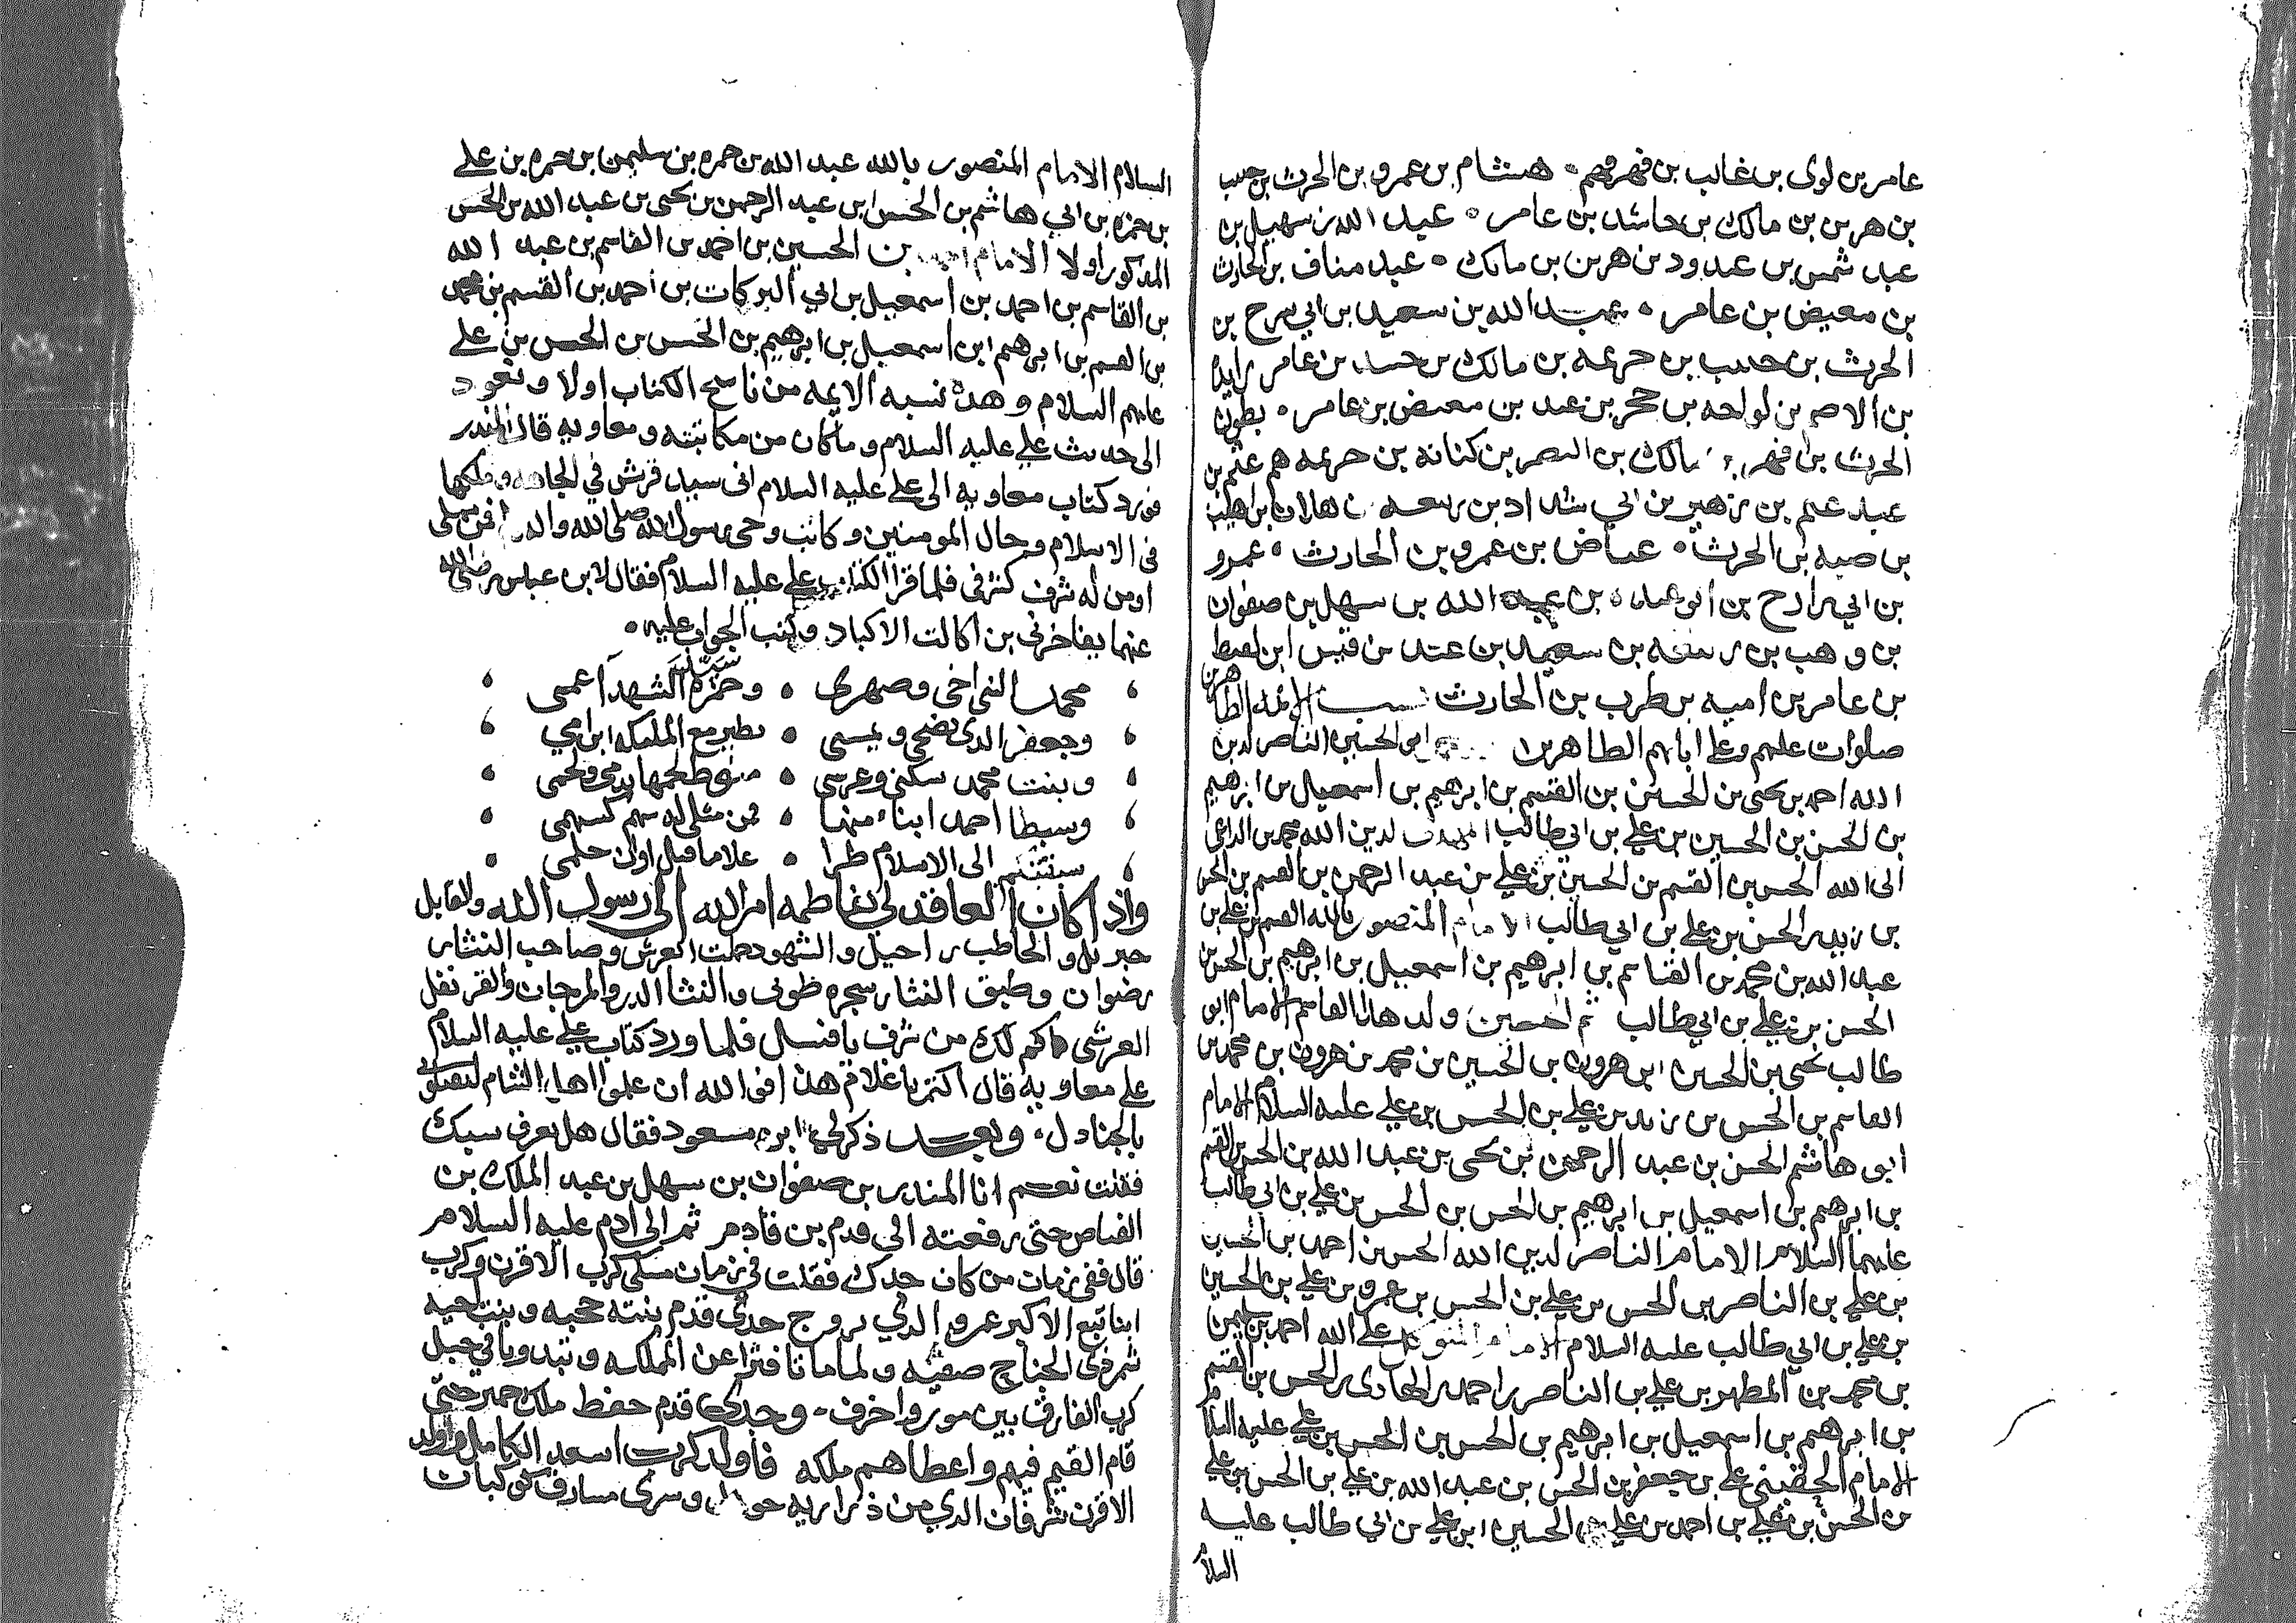 عامر بن لوى بن غالب بن فهر فهم هشام بن عمرو بن الحرث بن حبيب
بن هر بن مالك بن حاشد بن عامر عبد الله بن سهيل بن
عبد شمس بن عبدود بن هر بن مالك عبد مناف بن الحارث
بن معيض بن عامر عبد الله بن سعيد بن ابي سرح بن
الحرث بن حبيب بن حريمه بن مالك بن عامر
بن الاصم بن حجر بن عبد بن معيض بن عامر بطون
الحرث بن فهر بن مالك بن النصر بن كنانه بن حريمه هم غنم بن
عبد غنم بن زهير بن ابي شداد بن ربيعه بن هلال بن اهيب
بن ضبه بن الحرث عياض بن عمرو بن الحارث عمرو
بن ابي بن سهل بن صفوان
بن وهب بن ربيعه بن سعيد بن قيس ابن لقيط
بن عامر بن اميه بن طرب بن الحارث نسب الائمه الطاهرين
صلوات عليهم وعلى ابائهم الطاهرين ابن الحسين الناصر لدين
الله احمد بن يحيى بن الحسين بن القسم بن ابرهيم بن اسمعيل بن ابرهيم
بن الحسن بن الحسين بن علي بن ابي طالب المهدي لدين الله محمد بن الداعي
الى الله الحسن بن القسم بن الحسين بن علي بن عبد الرحمن بن القسم بن الحسن
بن زيد بن الحسن بن علي بن ابي طالب الامام المنصور بالله القسم بن علي بن
عبد الله بن محمد بن القاسم بن ابرهيم بن اسمعيل بن ابرهيم بن الحسن بن
الحسن بن علي بن ابي طالب ثم الحسين ولد هذا القاسم الامام ابو
طالب يحيى بن الحسين ابن هرون بن الحسين بن محمد بن هرون بن محمد بن
القاسم بن الحسن بن زيد بن علي بن الحسن بن علي عليه السلام الامام
ابو هاشم الحسن بن عبد الرحمن بن يحيى بن عبد الله بن الحسن بن القسم
بن ابرهيم بن اسمعيل بن ابرهيم بن الحسن بن الحسن بن علي بن ابي طالب
عليهما السلام الامام الناصر لدين الله الحسن بن احمد بن الحسين
بن علي بن الناصر بن الحسن بن علي بن الحسن بن عمرو بن علي بن الحسين
بن علي بن ابي طالب عليه السلام الامام المتوكل على الله احمد بن سليمن
بن محمد بن المطهر بن علي بن الناصر احمد بن الهادي بن الحسن بن القسم
بن ابرهيم بن اسمعيل بن ابرهيم بن الحسن بن الحسن بن علي عليه السلام
الامام الحقيني علي بن جعفر بن الحسن بن عبد الله بن علي بن الحسن بن علي
بن الحسن بن علي بن احمد بن علي بن الحسين ابن علي بن ابي طالب عليه
السلام
السلام الامام المنصور بالله عبد الله بن حمزه بن سليمن بن حمزه بن علي
بن حمزه بن ابي هاشم بن الحسن ابن عبد الرحمن بن يحيى بن عبد الله بن الحسن
المذكور اولا الامام احمد بن الحسين بن احمد بن القاسم بن عبد الله
بن القاسم بن احمد بن اسمعيل بن ابي البركات بن احمد بن القسم بن محمد
بن القسم بن ابرهيم ابن اسمعيل بن ابرهيم بن الحسن بن الحسن بن علي
عليهم السلام وهذه نسبه الايمه من ناسخ الكتاب اولا ونعود
الى حديث علي عليه السلام وما كان من مكاتبته ومعاويه قال المنذر
فورد كتاب معاويه الى علي عليه السلام انى سيد قريش في الجاهليه وملكها
في الاسلام وخال المومنين وكاتب وحى رسول الله صلى الله واله فمن مثلى
او من له شرف كشرفى فلما قرا الكتاب علي عليه السلام فقال لابن عباس رضي الله
عنهما يفاخرني بن اكالت الاكباد وكتب الجواب عليه
محمد النبى اخى وصهرى وحمزه سيد الشهدآ عمى
وجعفر الدى يضحى ويمسى يطير مع الملئكه ابن امي
وبنت محمد سكنى وعرسى منوط لحمها بدمى ولحمى
وسبطا احمد ابناء منها فمن مثلى له سهم كسهمى
سبقتكم الى الاسلام طرا غلاما قبل اوان حلمى
واذ كان العاقد لي بفاطمه امر الله الى رسول الله والقابل
جبرئل والخاطب راحيل والشهود حملت العرش وصاحب النثار
رضوان وطبق النثار شجره طوبى والنثار الدر والمرجان والقرنفل
العرشى فاكم لك من شرف يا فلما ورد كتاب علي عليه السلام
على معاويه قال اكتم يا غلام هذا فوالله ان علموا اهل الشام
بالجنادل وبعد ذكر لي ابن مسعود فقال هل تعرف نسبك
فقلت نعم انا المنذر بن صفوان بن سهل بن عبد الملك بن
القياض حتى رفعته الى قدم بن قادم ثم الى ادم عليه السلام
قال ففى زمان من كان جدك فقلت في زمان ملكى كرب الاقرن وكرب
ابنا تبع الاكبر عمرو الدي زوج جدى قدم بنته حجبه وبنت حيه
شمر ذى الجناح صفيه ولما ماتا عن المملكه وتبدوا في جبل
كرب الفارق بين مور واخرف وجدى قدم حفظ ملك حمير حتى
قام القيم فيهم واعطاهم ملكه فاولد كرب اسعد الكامل واولد
الاقرن شرفان الدي من